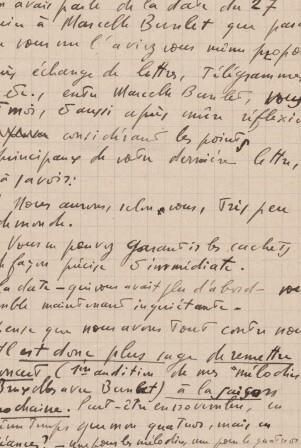 avait parlé de la date du 27
à Marcelle Bunlet que
vous me l'aviez vous même propo
échange de lettres, télégrammes,
etc., entre Marcelle Bunlet, vous
moi, & aussi après mûre réflexio
considérant les points
principaux de votre dernière lettre,
à savoir:
Nous aurons, selon vous, très peu
de monde.
Vous ne pouvez garantir les cachets
façon précise & immédiate.
la date - qui vous avait plu d'abord - vous
semble maintenant inquiétante -
pense que nous avons tout contre nous
Il est donc plus sage de remettre
concert (1ère audition de mes "mélodies
Bruxelles avec Bunlet) à la saison
prochaine. Peut-être en novembre, en
même temps que mon quatuor, mais en
séances? - une pour les mélodies, une pour le quatuor